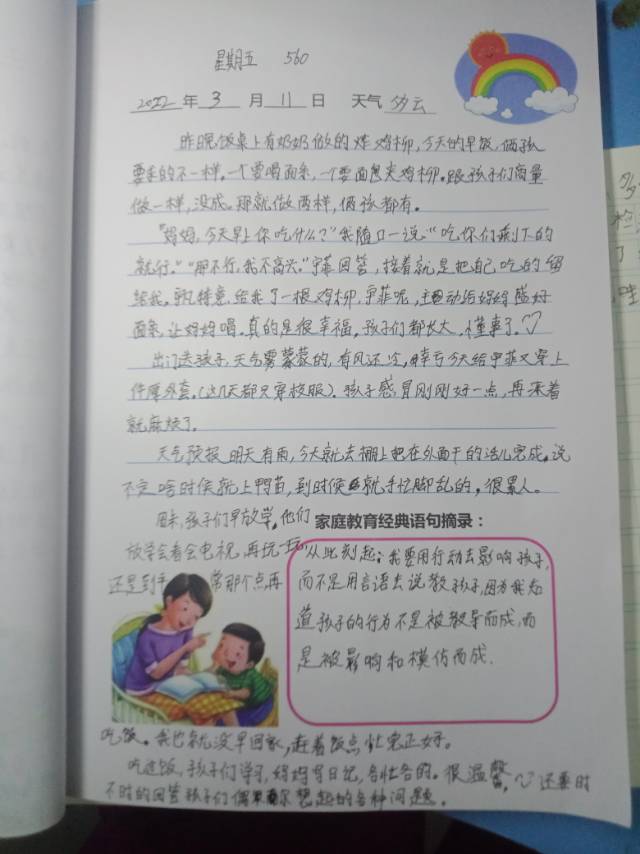 星期五 560
2022年3月11日 天气 多云
昨晚饭桌上有奶奶做的炸鸡柳,今天的早饭,俩孩
要求的不一样。一个要喝面条,一个要面包夹鸡柳。跟孩子们商量
做一样,没成。那就做两样,俩孩都有。
"妈妈,今天早上你吃什么?"我随口一说:"吃你们剩下的
就行。""那不行,我不高兴。"宇菲回答,接着就是把自己吃的留
给我。特意给我了一根鸡柳,宇菲呢,主动给妈妈盛好
面条,让妈妈喝。真的是很幸福,孩子们都长大,懂事了。
出门送孩子,天气雾蒙蒙的,有风还冷,幸亏今天给宇菲又穿上
件厚外套。(这几天都只穿校服)。孩子感冒刚刚好一点,再冻着
就麻烦了。
天气预报明天有雨,今天就去棚上把在外面干的活儿完成。说
不定啥时候就上鸭苗,到时候就手忙脚乱的,很累人。
周末,孩子们早放学,他们
放学会看会电视,再玩玩
还是到平常那个点再
家庭教育经典语句摘录:
从此刻起:我要用行动去影响孩子,
而不是用言语去说教孩子,因为我知
道孩子的行为不是被教导而成,而
是被影响和模仿而成.
吃饭。我也就没早回家,赶着饭点忙完正好。
吃过饭,孩子们学习,妈妈写日记,各忙各的。很温馨,还要时
不时的回答孩子们偶尔想起的各种问题。